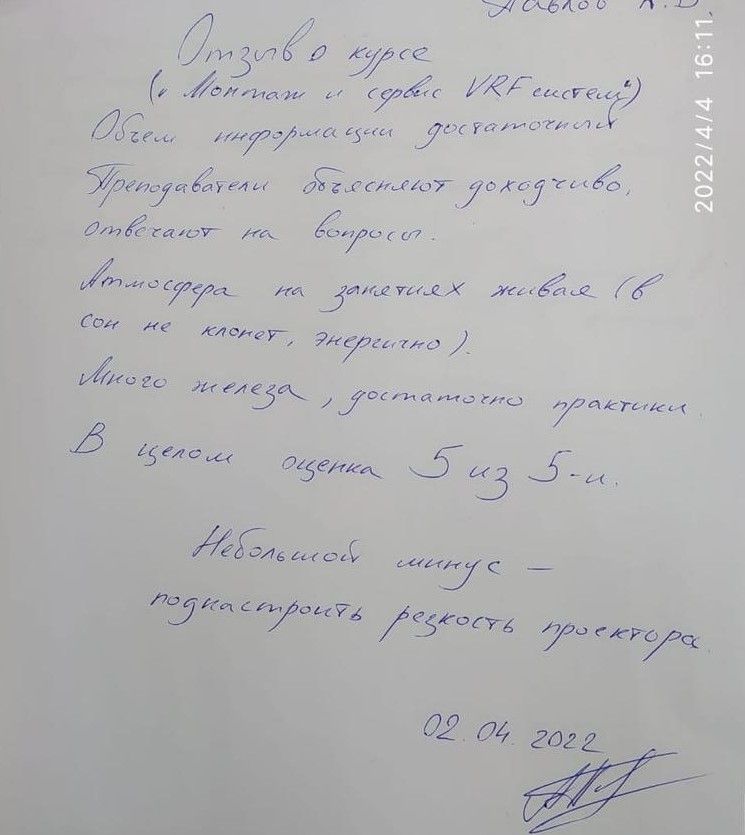 Павлов К.В.
Отзыв о курсе
("Монтаж и сервис VRF систем")
Объем информации достаточный
Преподаватели объясняют доходчиво,
отвечают на вопросы.
Атмосфера на занятиях живая (в
сон не клонет, энергично).
Много железа, достаточно практики.
В целом оценка 5 из 5-и.
Небольшой минус –
поднастроить резкость проектора.
02.04.2022
2022/4/4 16:11